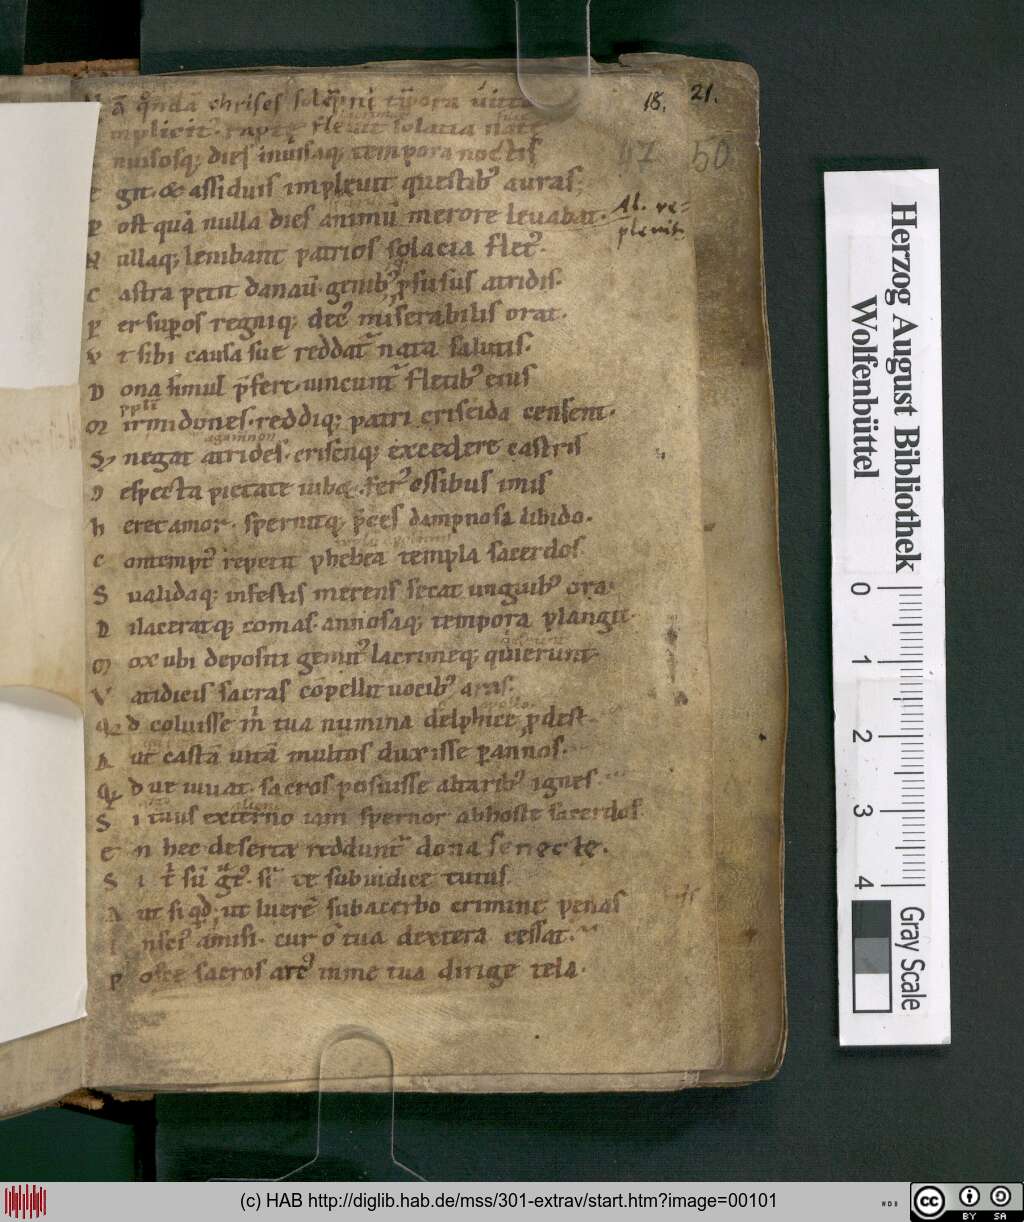 18. 21.
N ā q̊ndā chrises solēpni tp̄ora uitta
mplicit᷒ rapte fleuit solatia nate
nuisosq; dies inuisaq; tempora noctis
47 50
E git. & assiduis impleuit questib᷒ auras.
P ost quā nulla dies animū merore leuabat.
Al. re=
pleuit.
N ullaq; lenibant patrios solacia flet᷒.
C astra petit danaū. genib᷒ p̄fusus atridis.
P er suꝑos regniq; dec᷒ miserabilis orat.
V t sibi causa sue reddat᷑ nata salutis.
D ona simul p̄fert. uincunt᷑ fletib᷒ eius
ppli
M irmidones. reddiq; patri criseida censent.
agamnon
S; negat atrides. crisenq; excedere castris
D especta pietate iubet. fer᷒ ossibus imis
h eret amor. spernitq; p̄ces dampnosa libido.
C ontempt᷒ repetit phebea templa sacerdos.
S ualidaq; infestis merens secat unguib᷒ ora.
D ilaceratq; comas. annosaq; tempora plangit.
M ox ubi depositi gemit᷒ lacrimeq; quierunt.
V atidicis sacras cōpellit uocib᷒ aras.
Q d coluisse m̊ tua numina delphice ꝓdest.
A ut castā uitā multos duxisse ꝑ annos.
Q d ue iuuat. sacros posuisse altarib᷒ ignes.
S i tuus externo iam spernor ab hoste sacerdos.
E n hec deserte reddunt᷑ dona senecte.
S i g᷑t᷒ sū te sub uidice tutus
A ut si qd; ut luerē sub acerbo crimine penas
I nsci᷒ amisi. cur o tua dextera cessat.
P osce sacros arc᷒ in me tua dirige tela.
Herzog August Bibliothek
Wolfenbüttel
0 1 2 3 4
Gray Scale
(c) HAB http://diglib.hab.de/mss/301-extrav/start.htm?image=00101
cc BY SA